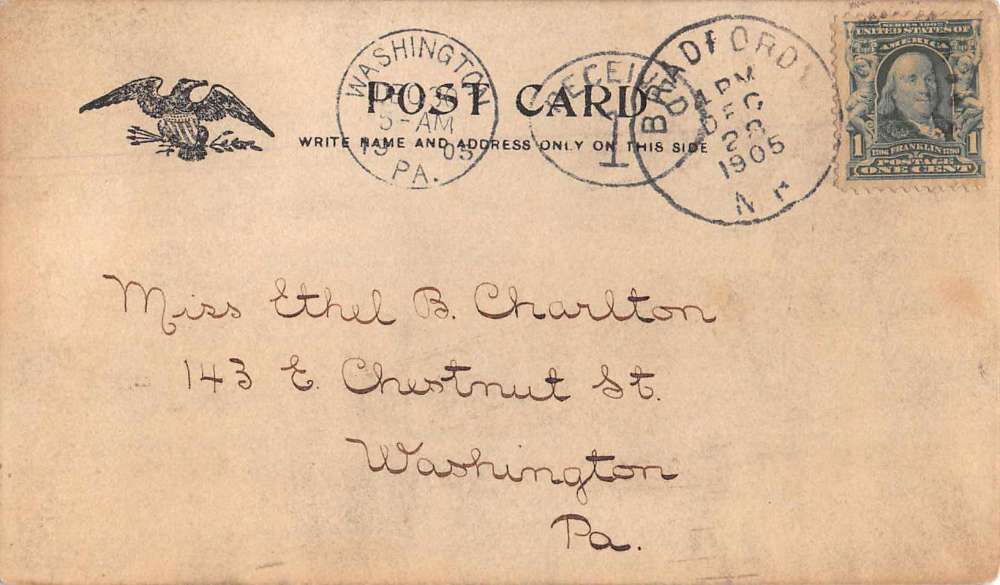 POST CARD
WRITE NAME AND ADDRESS ONLY ON THIS SIDE
WASHINGTON
5-AM
05
PA.
RECEIVED
1
BRADFORD
PM
1905
N
SERIES 1902
UNITED STATES OF
AMERICA
1 FRANKLIN 1
POSTAGE
ONE CENT
Miss Ethel B. Charlton
143 E. Chestnut St.
Washington
Pa.